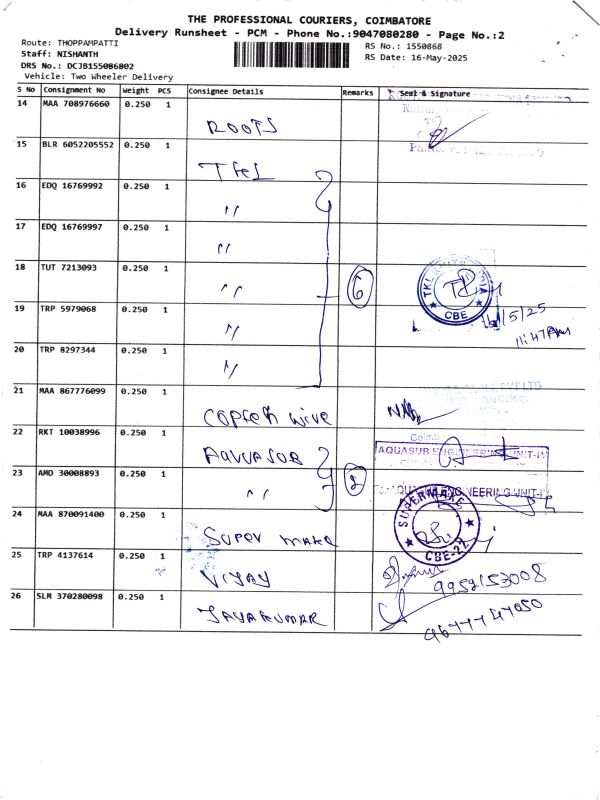 THE PROFESSIONAL COURIERS, COIMBATORE
Delivery Runsheet - PCM - Phone No.:9047080280 - Page No.:2
Route: THOPPAMPATTI
Staff: NISHANTH
DRS No.: DCJB155086802
Vehicle: Two Wheeler Delivery
RS No.: 1550868
RS Date: 16-May-2025
S No Consignment No Weight PCS Consignee Details Remarks Seal & Signature
14 MAA 708976660 0.250 1 ROOTS
15 BLR 6052205552 0.250 1
16 EDQ 16769992 0.250 1 〃
17 EDQ 16769997 0.250 1 〃
18 TUT 7213093 0.250 1 〃 6
CBE
19 TRP 5979068 0.250 1 〃 /5/25
11:47Am
20 TRP 8297344 0.250 1 〃
21 MAA 867776099 0.250 1 COPPER WIRE
22 RKT 10038996 0.250 1 AQUASUB
AQUASUB ENGINEERING UNIT-IV
23 AMD 30008893 0.250 1 〃 2
AQUASUB ENGINEERING UNIT-IV
24 MAA 870091400 0.250 1 SUPER MAKE
SUPERMAKE
CBE-22
25 TRP 4137614 0.250 1 VIJAY
9952153008
26 SLM 370280098 0.250 1 JAYAKUMAR